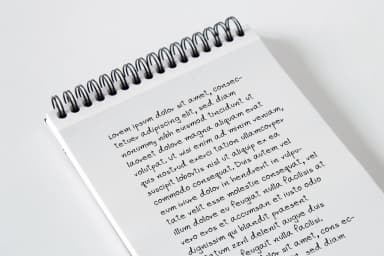 Lorem ipsum dolor sit amet, consec-
tetuer adipiscing elit, sed diam
nonummy nibh euismod tincidunt ut
laoreet dolore magna aliquam erat
volutpat. Ut wisi enim ad minim veniam,
quis nostrud exerci tation ullamcorper
suscipit lobortis nisl ut aliquip ex ea
commodo consequat. Duis autem vel
eum iriure dolor in hendrerit in vulpu-
tate velit esse molestie consequat, vel
illum dolore eu feugiat nulla facilisis at
vero eros et accumsan et iusto odio
dignissim qui blandit praesent
luptatum zzril delenit augue duis
feugait nulla facilisi.
dolor sit amet, cons ec-
elit, sed diam